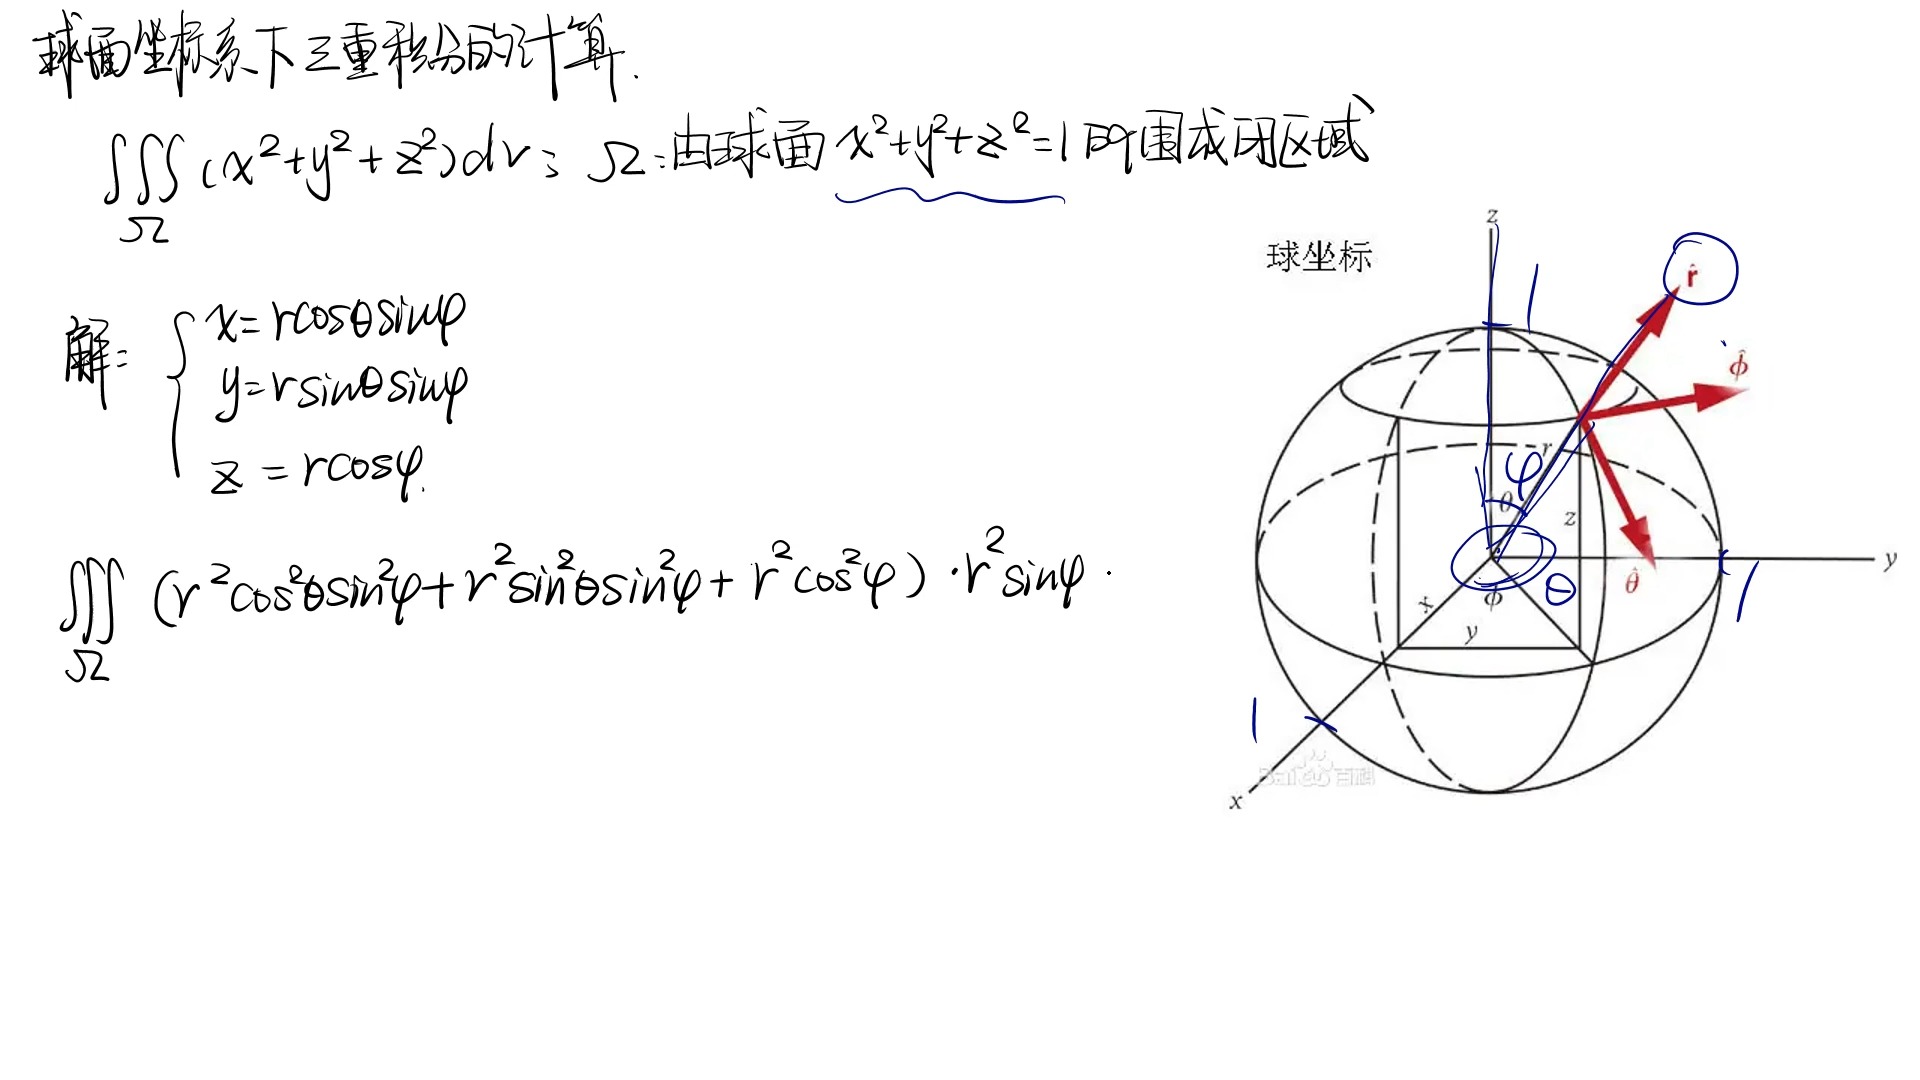 球面坐标系下三重积分的计算.
∭_Ω (x²+y²+z²)dv; Ω:由球面 x²+y²+z²=1 所围成闭区域
解:
{ x=rcosθsinφ
y=rsinθsinφ
z=rcosφ.
∭_Ω (r²cos²θsin²φ+r²sin²θsin²φ+r²cos²φ)·r²sinφ·
球坐标
z
1
r̂
φ̂
r
φ
θ
z
y
θ̂
θ
ϕ
1
x
y
1
x
Baidu百科